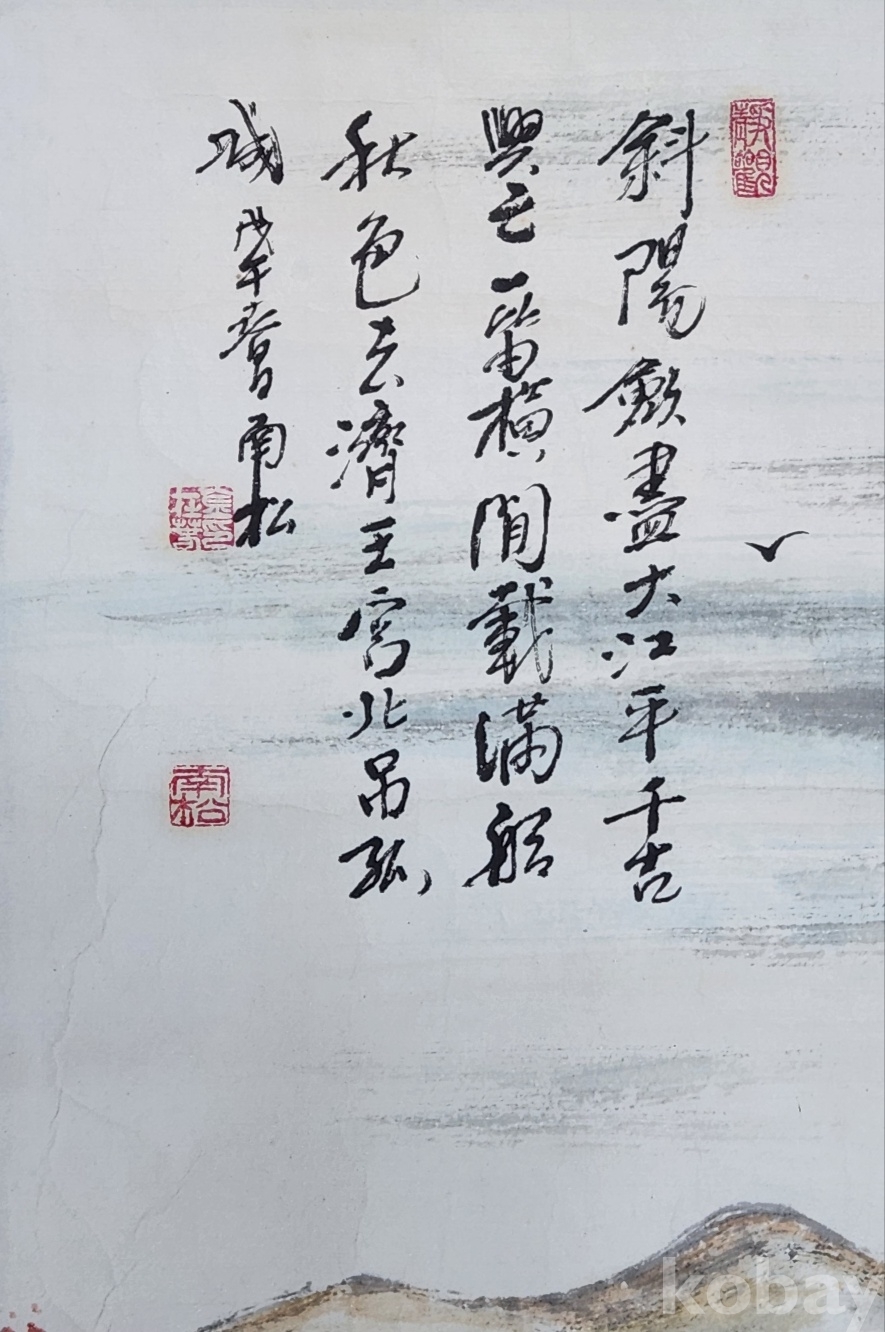 靜觀
斜陽歛盡大江平千古
興亡一笛橫閒載滿船
秋色去濟王宮北吊孤
城戊午春南松
南松
kobay